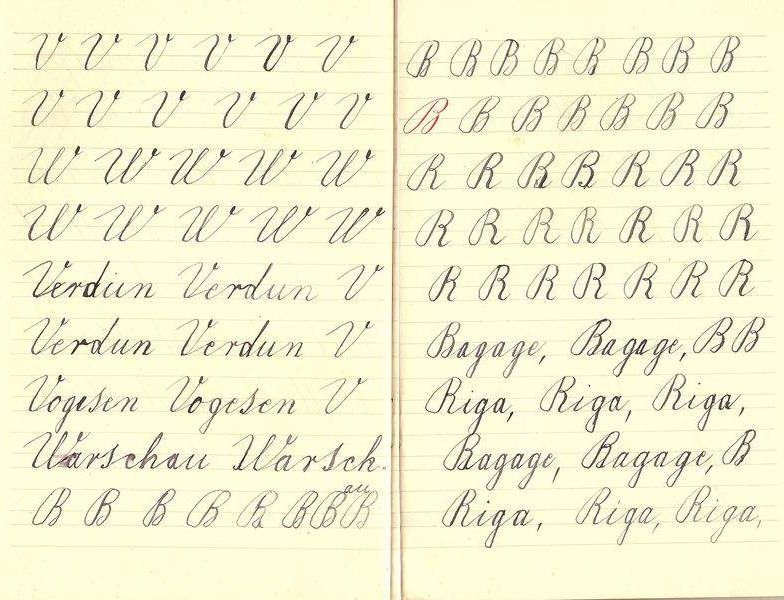 V V V V V V
V V V V V V
W W W W W
W W W W W
Verdun Verdun V
Verdun Verdun V
Vogesen Vogesen V
Warschau Warsch.
au
B B B B B B B B
B B B B B B B B
B B B B B B B
R R R R R R R
R R R R R R R
R R R R R R R
Bagage, Bagage, B B
Riga, Riga, Riga,
Bagage, Bagage, B
Riga, Riga, Riga,